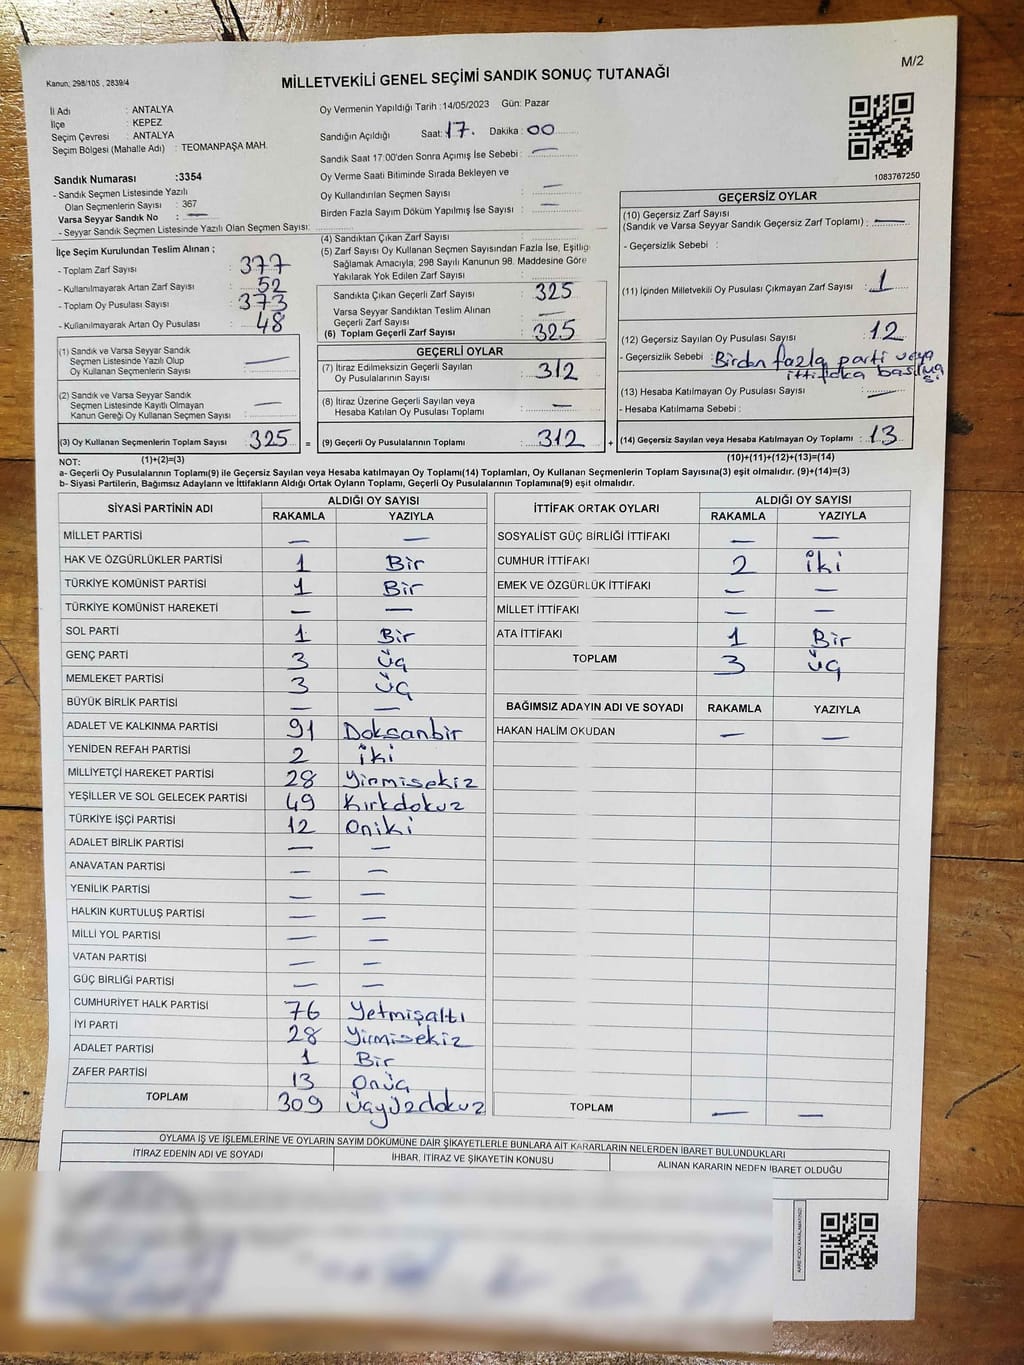 M/2
Kanun: 298/105 , 2839/4
MİLLETVEKİLİ GENEL SEÇİMİ SANDIK SONUÇ TUTANAĞI
İl Adı : ANTALYA
İlçe : KEPEZ
Seçim Çevresi : ANTALYA
Seçim Bölgesi (Mahalle Adı) : TEOMANPAŞA MAH.
Oy Vermenin Yapıldığı Tarih :14/05/2023 Gün: Pazar
Sandığın Açıldığı Saat: 17. Dakika: 00
Sandık Saat 17:00'den Sonra Açımış İse Sebebi : —
Oy Verme Saati Bitiminde Sırada Bekleyen ve
Oy Kullandırılan Seçmen Sayısı : —
Birden Fazla Sayım Döküm Yapılmış İse Sayısı : —
1083767250
Sandık Numarası :3354
- Sandık Seçmen Listesinde Yazılı
Olan Seçmenlerin Sayısı : 367
Varsa Seyyar Sandık No : —
- Seyyar Sandık Seçmen Listesinde Yazılı Olan Seçmen Sayısı:
İlçe Seçim Kurulundan Teslim Alınan ;
- Toplam Zarf Sayısı : 377
- Kullanılmayarak Artan Zarf Sayısı : 52
- Toplam Oy Pusulası Sayısı : 373
- Kullanılmayarak Artan Oy Pusulası : 48
(1) Sandık ve Varsa Seyyar Sandık
Seçmen Listesinde Yazılı Olup
Oy Kullanan Seçmenlerin Sayısı : —
(2) Sandık ve Varsa Seyyar Sandık
Seçmen Listesinde Kayıtlı Olmayan
Kanun Gereği Oy Kullanan Seçmen Sayısı : —
(3) Oy Kullanan Seçmenlerin Toplam Sayısı : 325 =
(1)+(2)=(3)
(4) Sandıktan Çıkan Zarf Sayısı :
(5) Zarf Sayısı Oy Kullanan Seçmen Sayısından Fazla İse, Eşitliği
Sağlamak Amacıyla; 298 Sayılı Kanunun 98. Maddesine Göre
Yakılarak Yok Edilen Zarf Sayısı :
Sandıkta Çıkan Geçerli Zarf Sayısı : 325
Varsa Seyyar Sandıktan Teslim Alınan
Geçerli Zarf Sayısı : —
(6) Toplam Geçerli Zarf Sayısı : 325
GEÇERLİ OYLAR
(7) İtiraz Edilmeksizin Geçerli Sayılan
Oy Pusulalarının Sayısı : 312
(8) İtiraz Üzerine Geçerli Sayılan veya
Hesaba Katılan Oy Pusulası Toplamı : —
(9) Geçerli Oy Pusulalarının Toplamı : 312 +
GEÇERSİZ OYLAR
(10) Geçersiz Zarf Sayısı
(Sandık ve Varsa Seyyar Sandık Geçersiz Zarf Toplamı) : —
- Geçersizlik Sebebi :
(11) İçinden Milletvekili Oy Pusulası Çıkmayan Zarf Sayısı : 1
(12) Geçersiz Sayılan Oy Pusulası Sayısı : 12
- Geçersizlik Sebebi : Birden fazla parti veya
ittifaka basılması
(13) Hesaba Katılmayan Oy Pusulası Sayısı : —
- Hesaba Katılmama Sebebi :
(14) Geçersiz Sayılan veya Hesaba Katılmayan Oy Toplamı : 13
(10)+(11)+(12)+(13)=(14)
NOT:
a- Geçerli Oy Pusulalarının Toplamı(9) ile Geçersiz Sayılan veya Hesaba katılmayan Oy Toplamı(14) Toplamları, Oy Kullanan Seçmenlerin Toplam Sayısına(3) eşit olmalıdır. (9)+(14)=(3)
b- Siyasi Partilerin, Bağımsız Adayların ve İttifakların Aldığı Ortak Oyların Toplamı, Geçerli Oy Pusulalarının Toplamına(9) eşit olmalıdır.
SİYASİ PARTİNİN ADI ALDIĞI OY SAYISI
RAKAMLA YAZIYLA
MİLLET PARTİSİ — —
HAK VE ÖZGÜRLÜKLER PARTİSİ 1 Bir
TÜRKİYE KOMÜNİST PARTİSİ 1 Bir
TÜRKİYE KOMÜNİST HAREKETİ — —
SOL PARTİ 1 Bir
GENÇ PARTİ 3 Üç
MEMLEKET PARTİSİ 3 Üç
BÜYÜK BİRLİK PARTİSİ — —
ADALET VE KALKINMA PARTİSİ 91 Doksanbir
YENİDEN REFAH PARTİSİ 2 İki
MİLLİYETÇİ HAREKET PARTİSİ 28 Yirmisekiz
YEŞİLLER VE SOL GELECEK PARTİSİ 49 Kırkdokuz
TÜRKİYE İŞÇİ PARTİSİ 12 Oniki
ADALET BİRLİK PARTİSİ — —
ANAVATAN PARTİSİ — —
YENİLİK PARTİSİ — —
HALKIN KURTULUŞ PARTİSİ — —
MİLLİ YOL PARTİSİ — —
VATAN PARTİSİ — —
GÜÇ BİRLİĞİ PARTİSİ — —
CUMHURİYET HALK PARTİSİ 76 Yetmişaltı
İYİ PARTİ 28 Yirmisekiz
ADALET PARTİSİ 1 Bir
ZAFER PARTİSİ 13 Onüç
TOPLAM 309 Üçyüzdokuz
İTTİFAK ORTAK OYLARI ALDIĞI OY SAYISI
RAKAMLA YAZIYLA
SOSYALİST GÜÇ BİRLİĞİ İTTİFAKI — —
CUMHUR İTTİFAKI 2 İki
EMEK VE ÖZGÜRLÜK İTTİFAKI — —
MİLLET İTTİFAKI — —
ATA İTTİFAKI 1 Bir
TOPLAM 3 Üç
BAĞIMSIZ ADAYIN ADI VE SOYADI RAKAMLA YAZIYLA
HAKAN HALİM OKUDAN — —
TOPLAM — —
OYLAMA İŞ VE İŞLEMLERİNE VE OYLARIN SAYIM DÖKÜMÜNE DAİR ŞİKAYETLERLE BUNLARA AİT KARARLARIN NELERDEN İBARET BULUNDUKLARI
İTİRAZ EDENİN ADI VE SOYADI İHBAR, İTİRAZ VE ŞİKAYETİN KONUSU ALINAN KARARIN NEDEN İBARET OLDUĞU